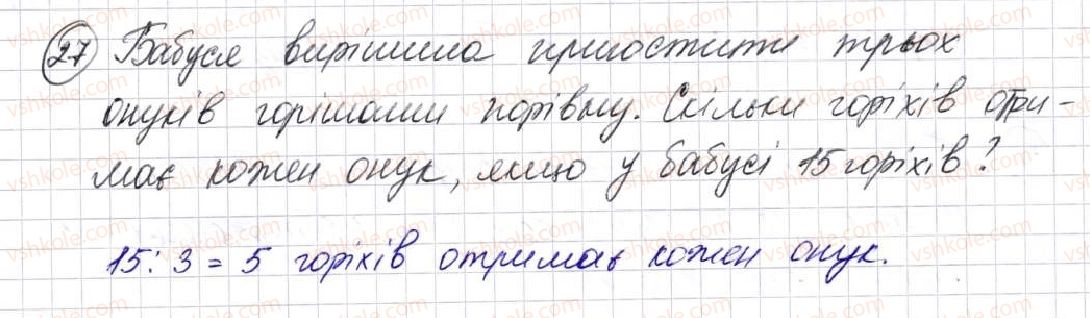 27 Бабуся вирішила пригостити трьох
онуків горішами порівну. Скільки горіхів отри-
має кожен онук, якщо у бабусі 15 горіхів?
15 : 3 = 5 горіхів отримає кожен онук.